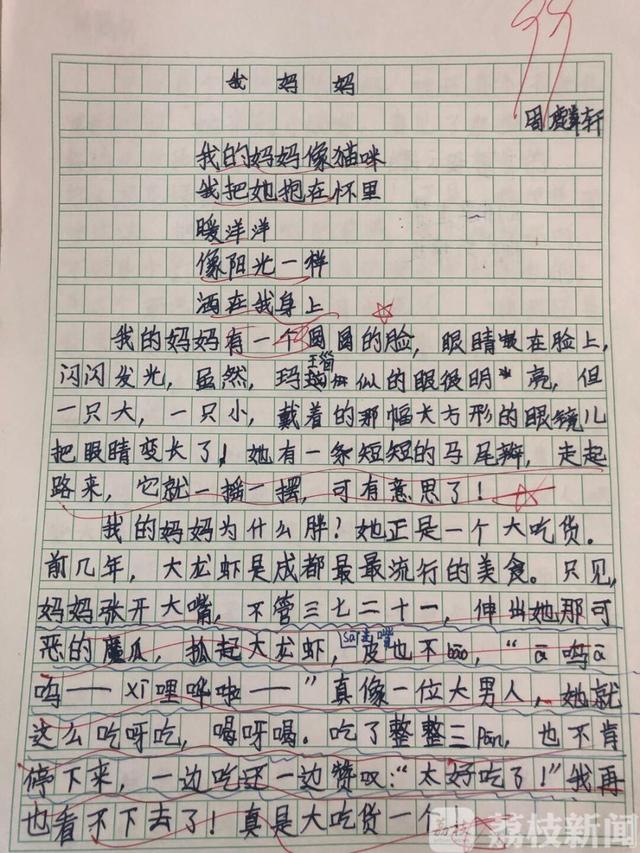 99
我妈妈
周麟轩
我的妈妈像猫咪
我把她抱在怀里
暖洋洋
像阳光一样
洒在我身上
我的妈妈有一个圆圆的脸，眼睛嵌在脸上，
闪闪发光，虽然，玛瑙似的眼很明亮，但
一只大，一只小，戴着的那幅大方形的眼镜儿
把眼睛变长了！她有一条短短的马尾辫，走起
路来，它就一摇一摆，可有意思了！
我的妈妈为什么胖？她正是一个大吃货。
前几年，大龙虾是成都最最流行的美食。只见，
妈妈张开大嘴，不管三七二十一，伸出她那可
恶的魔爪，抓起大龙虾，皮也不bāo，“ā呜ā
呜——xī哩哗啦——”真像一位大男人，她就
这么吃呀吃，喝呀喝。吃了整整三pán，也不肯
停下来，一边吃还一边赞叹：“太好吃了！”我再
也看不下去了！真是大吃货一个！
荔枝新闻